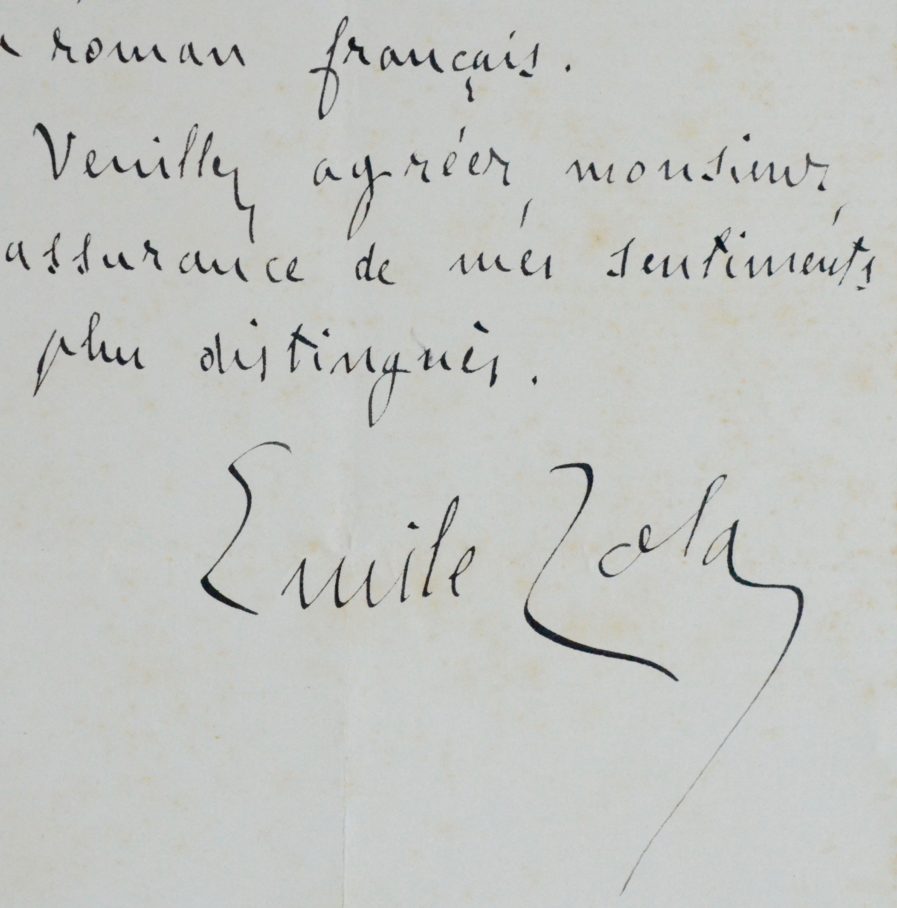 roman français.
Veuillez agréer, monsieur,
assurance de mes sentiments
plus distingués.
Emile Zola